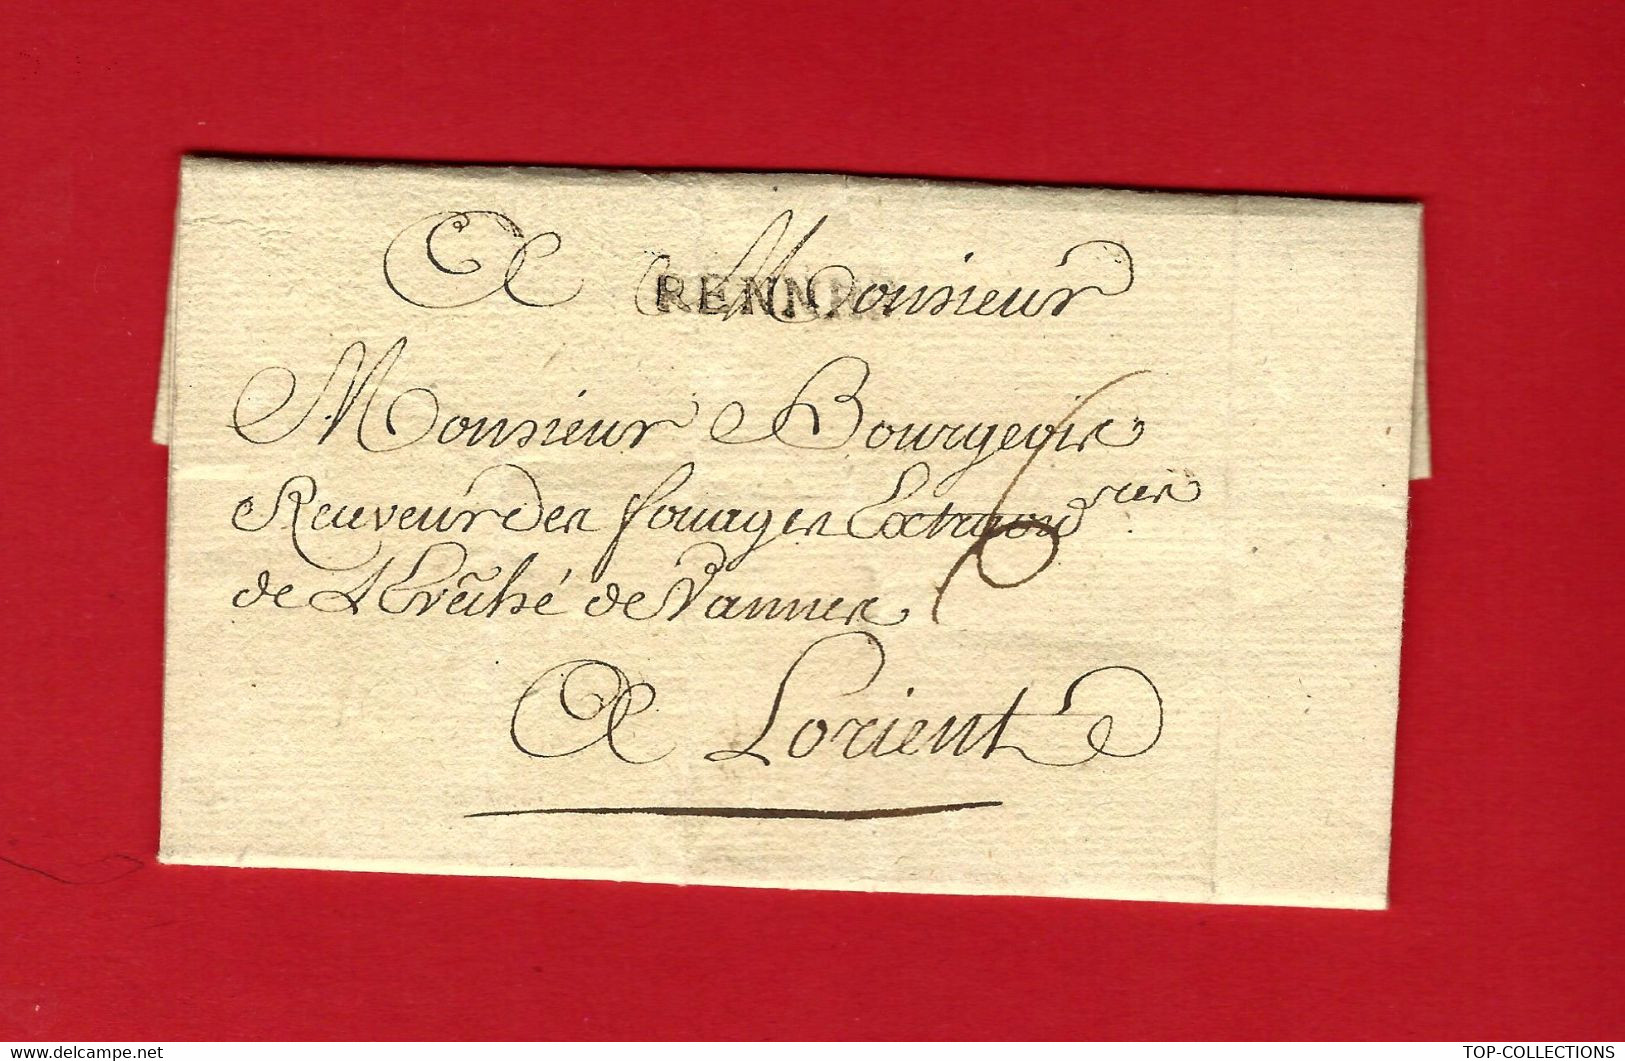 A Monsieur
RENNES
Monsieur Bourgeois
Receveur des fouages Extraord.res
de L'Evêché de Vannes
6
A Lorient
TOP-COLLECTIONS
www.delcampe.net